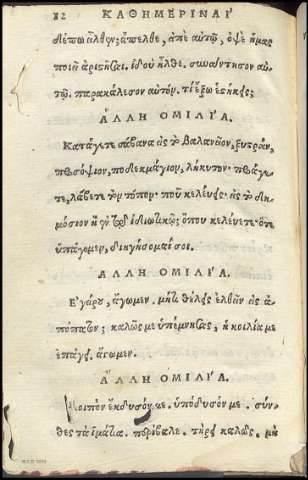 82 ΚΑΘΗΜΕΡΙΝΑΙ
δέπω ἦλθεν; ἄπελθε, εἰπὲ αὐτῷ, ὀψὲ
ἀριστῆσαι. ἰδοὺ ἦλθε. συνάντησον αὐ-
τῷ. παρακάλεσον αὐτόν. τί ἔξω ἕστηκας;
ΑΛΛΗ ΟΜΙΛΙΑ.
Κατάγετε σάβανα εἰς τὸ βαλανεῖον, ξύστραν,
προσόψιον, ποδεκμάγιον, λήκυτον. προάγε-
τε, λάβετε τὸν τόπον. ποῦ κελεύεις; εἰς τὸ δη-
μόσιον ἢ ἐν τῷ ἰδιωτικῷ; ὅπου κελεύετε. ὅτε
ὑπάγομεν, διηγήσομαί σοι.
ΑΛΛΗ ΟΜΙΛΙΑ.
Εγείρου, ἄγωμεν. μήτι θέλεις ἐλθεῖν εἰς ἀ-
πόπατον; καλῶς με ὑπέμνησας, ἡ κοιλία με
ἐπείγει. ἄγωμεν.
ΑΛΛΗ ΟΜΙΛΙΑ.
Λοιπὸν ἔκδυσόν με. ὑπόδυσόν με. σύν-
θες τὰ ἱμάτια. περίβαλε. τήρει καλῶς. μὴ